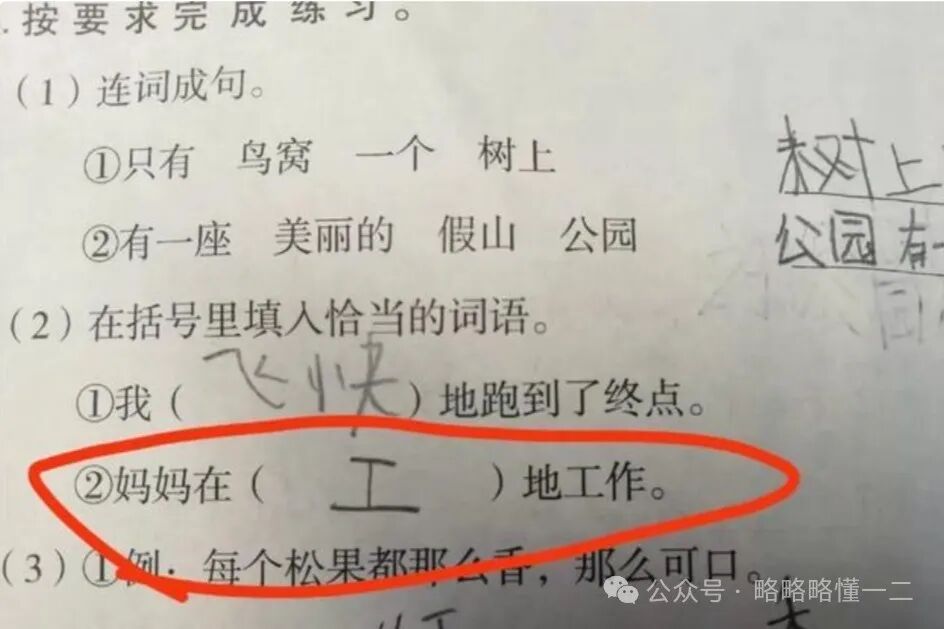 .按要求完成练习。
(1)连词成句。
①只有 鸟窝 一个 树上
树上
②有一座 美丽的 假山 公园
公园有一
(2)在括号里填入恰当的词语。
①我(飞快)地跑到了终点。
②妈妈在(工)地工作。
(3)①例:每个松果都那么香,那么可口。
公众号·略略略懂一二